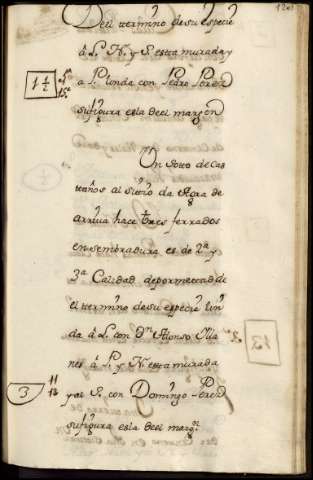 Deel termino de su especie
á L. N. y S. esta murada y
a P. linda con Pedro Perez
su figura es la deel margen
1 1/2
Un Soto de Cas
taños al sitio da Agra de
arriva hace tres ferrados
en sembradura es de 2ª y
3ª Calidad depormettad de
el termino de su especie lin
da á L. con Dn Alonso Illa
nes á P. y N. esta murada
y al S. con Domingo Perez
su figura es la deel margn
3
11
12
13